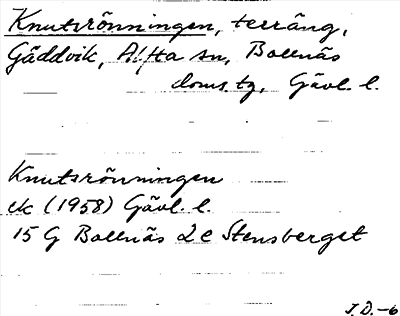 Knutsrönningen, terräng,
Gäddvik, Alfta sn, Bollnäs
doms.tg, Gävl. l.
Knutsrönningen
ek (1958) Gävl. l.
15 G Bollnäs 2 c Stensberget
J.D.-6